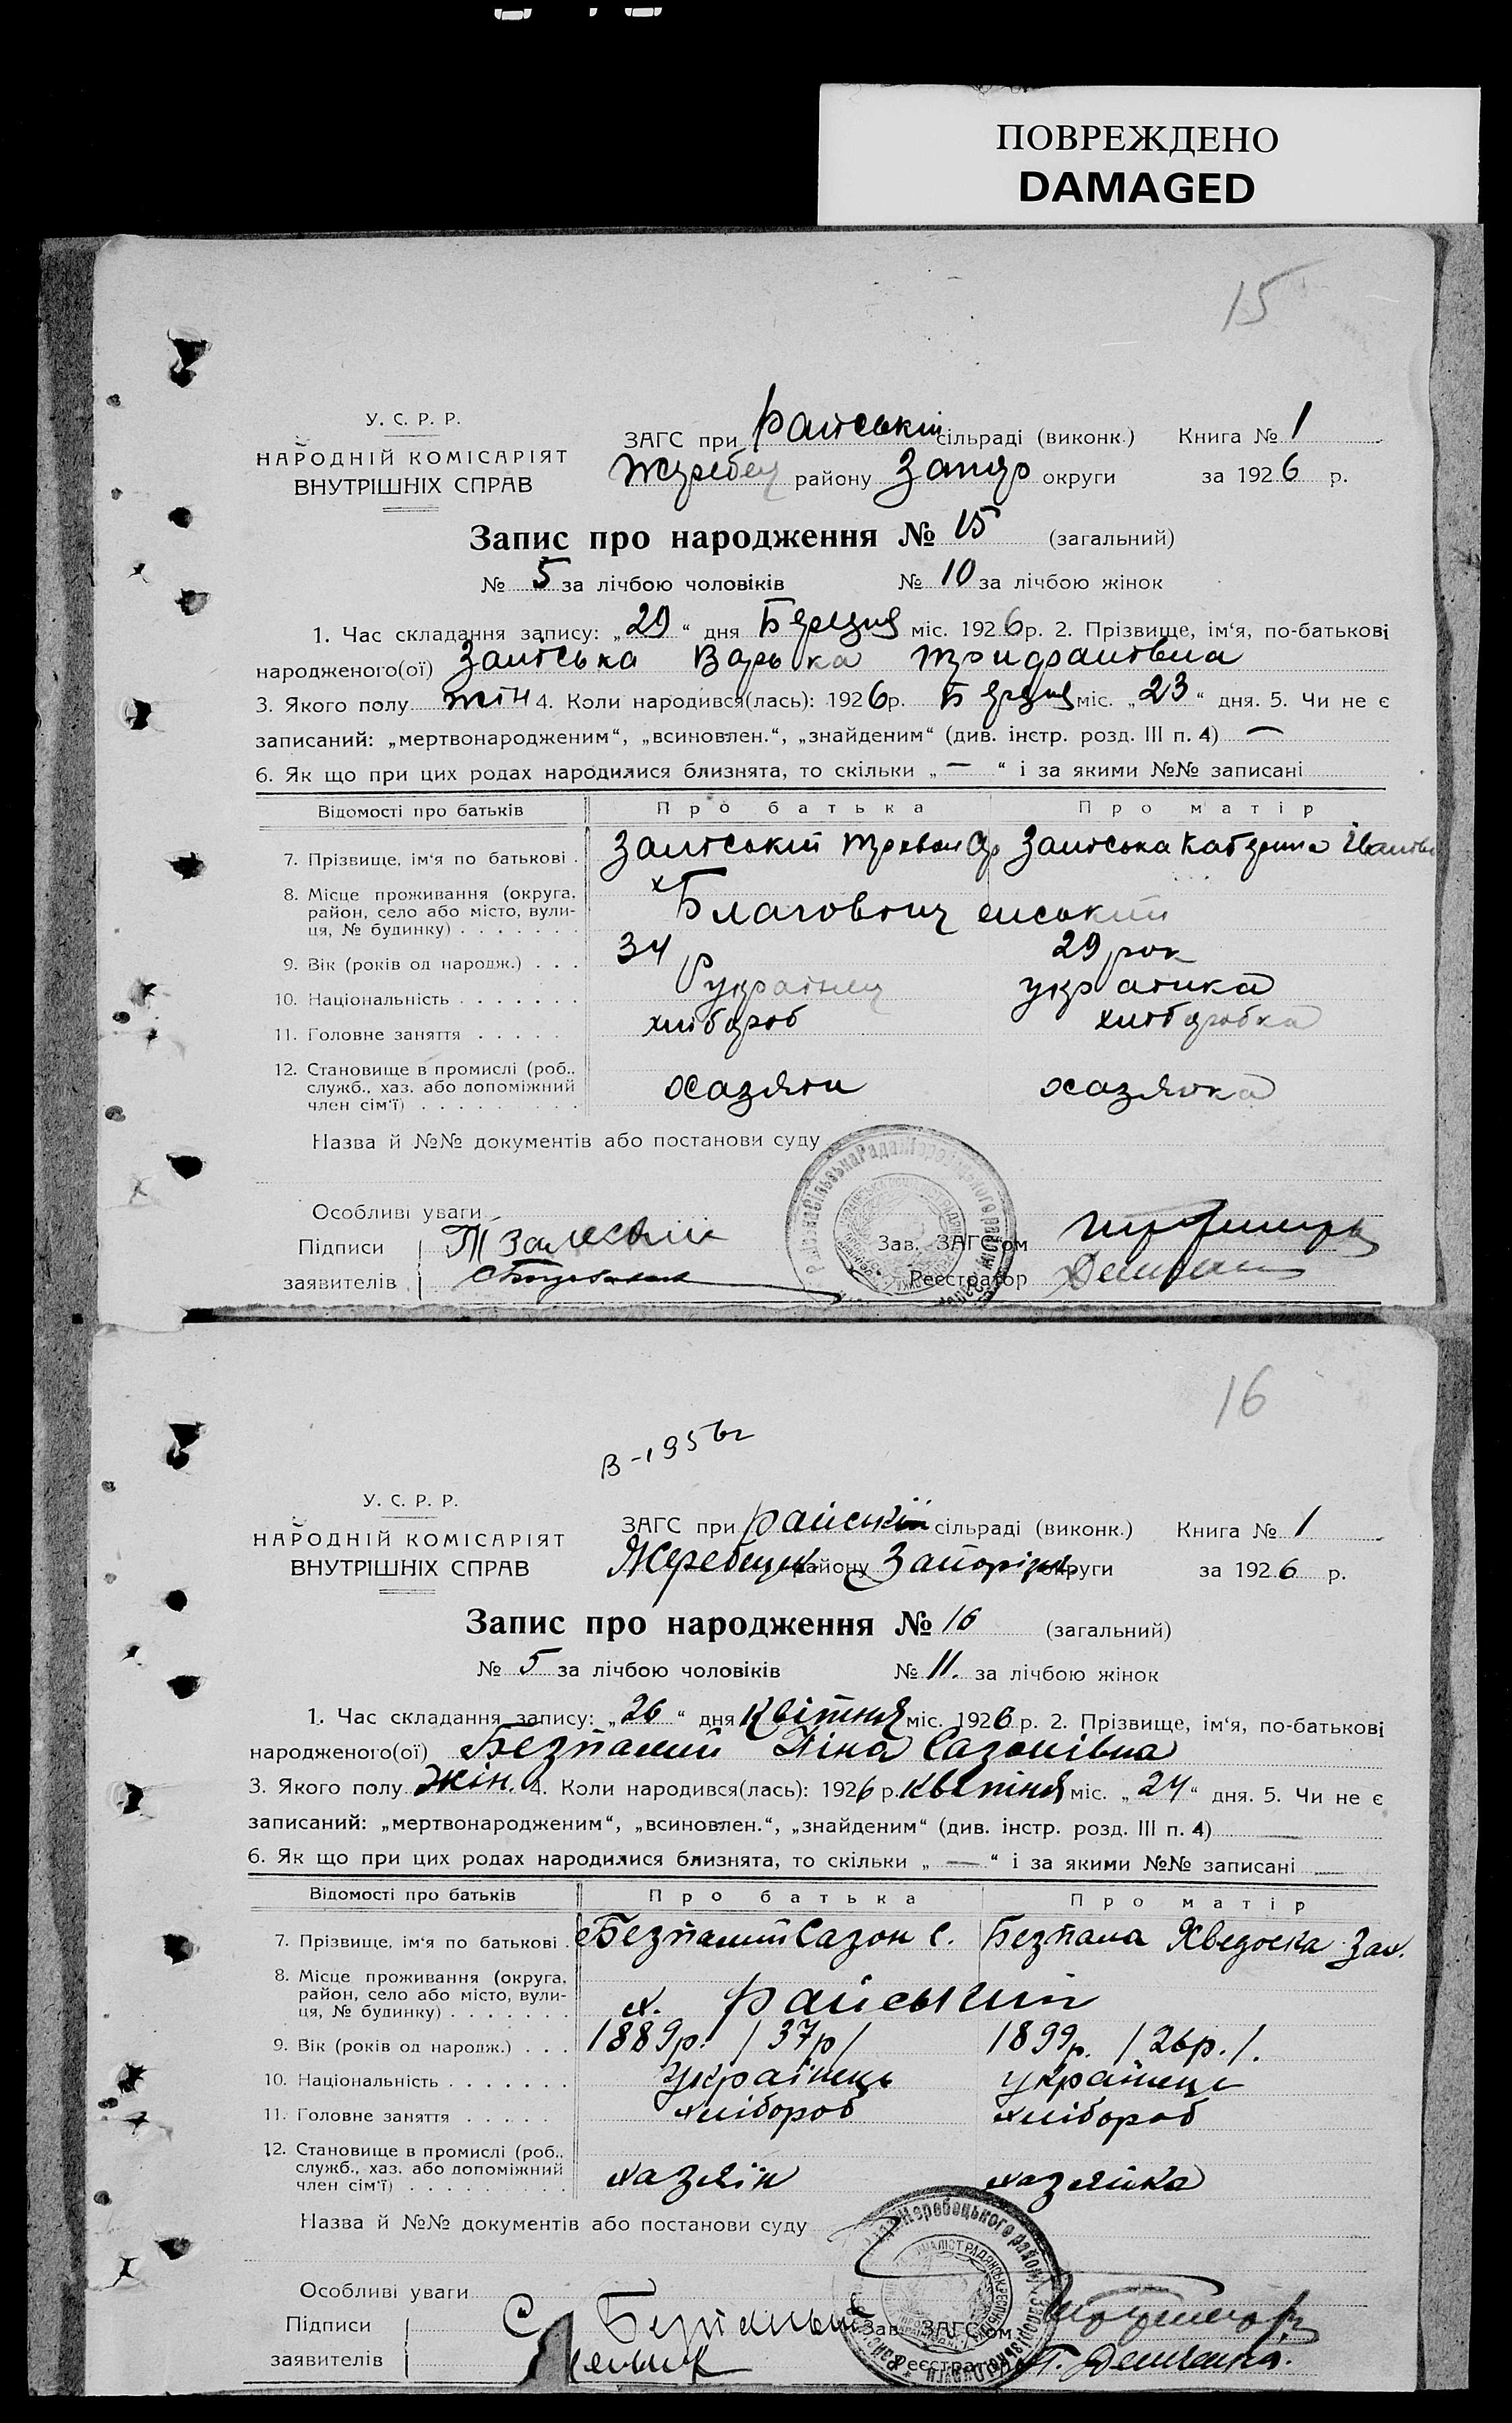 ПОВРЕЖДЕНО
DAMAGED
15
У. С. Р. Р.
НАРОДНІЙ КОМІСАРІЯТ
ВНУТРІШНІХ СПРАВ
ЗАГС при Райській сільраді (виконк.) Книга № 1
Жеребец району Запор округи за 1926 р.
Запис про народження № 15 (загальний)
№ 5 за лічбою чоловіків № 10 за лічбою жінок
1. Час складання запису: „29“ дня Березня міс. 1926 р. 2. Прізвище, ім‘я, по-батькові
народженого(ої) Заїтська Варька
3. Якого полу жін 4. Коли народився(лась): 1926 р. Березня міс. „23“ дня. 5. Чи не є
записаний: „мертвонародженим“, „всиновлен.“, „знайденим“ (див. інстр. розд. III п. 4) —
6. Як що при цих родах народилися близнята, то скільки „—“ і за якими №№ записані
Відомості про батьків Про батька Про матір
7. Прізвище, ім‘я по батькові
8. Місце проживання (округа,
район, село або місто, вули-
ця, № будинку)
9. Вік (років од народж.) 34 29 рок
10. Національність українец українка
11. Головне заняття хліборob хліборобка
12. Становище в промислі (роб.,
служб., хаз. або допоміжний
член сім‘ї) хазяїн хазяйка
Назва й №№ документів або постанови суду
Особливі уваги
Підписи Зав. ЗАГС‘ом
заявителів Реєстратор
16
В-1956г
У. С. Р. Р.
НАРОДНІЙ КОМІСАРІЯТ
ВНУТРІШНІХ СПРАВ
ЗАГС при Райській сільраді (виконк.) Книга № 1
Жеребецьк. району Запоріzьк. округи за 1926 р.
Запис про народження № 16 (загальний)
№ 5 за лічбою чоловіків № 11. за лічбою жінок
1. Час складання запису: „26“ дня Квітня міс. 1926 р. 2. Прізвище, ім‘я, по-батькові
народженого(ої) Безпалий Ніна Сазонівна
3. Якого полу Жін. 4. Коли народився(лась): 1926 р. Квітня міс. „24“ дня. 5. Чи не є
записаний: „мертвонародженим“, „всиновлен.“, „знайденим“ (див. інстр. розд. III п. 4) —
6. Як що при цих родах народилися близнята, то скільки „—“ і за якими №№ записані —
Відомості про батьків Про батька Про матір
7. Прізвище, ім‘я по батькові Безпалий Сазон С. Безпала Хведоска Зах.
8. Місце проживання (округа,
район, село або місто, вули-
ця, № будинку) х. Райський
9. Вік (років од народж.) 1889р. /37р/ 1899р. /26р./.
10. Національність Українець українець
11. Головне заняття хлібороб хлібороб
12. Становище в промислі (роб.,
служб., хаз. або допоміжний
член сім‘ї) хазяїн хазяйка
Назва й №№ документів або постанови суду
Особливі уваги
Підписи С. Безпалый Зав. ЗАГС‘ом
заявителів Реєстратор